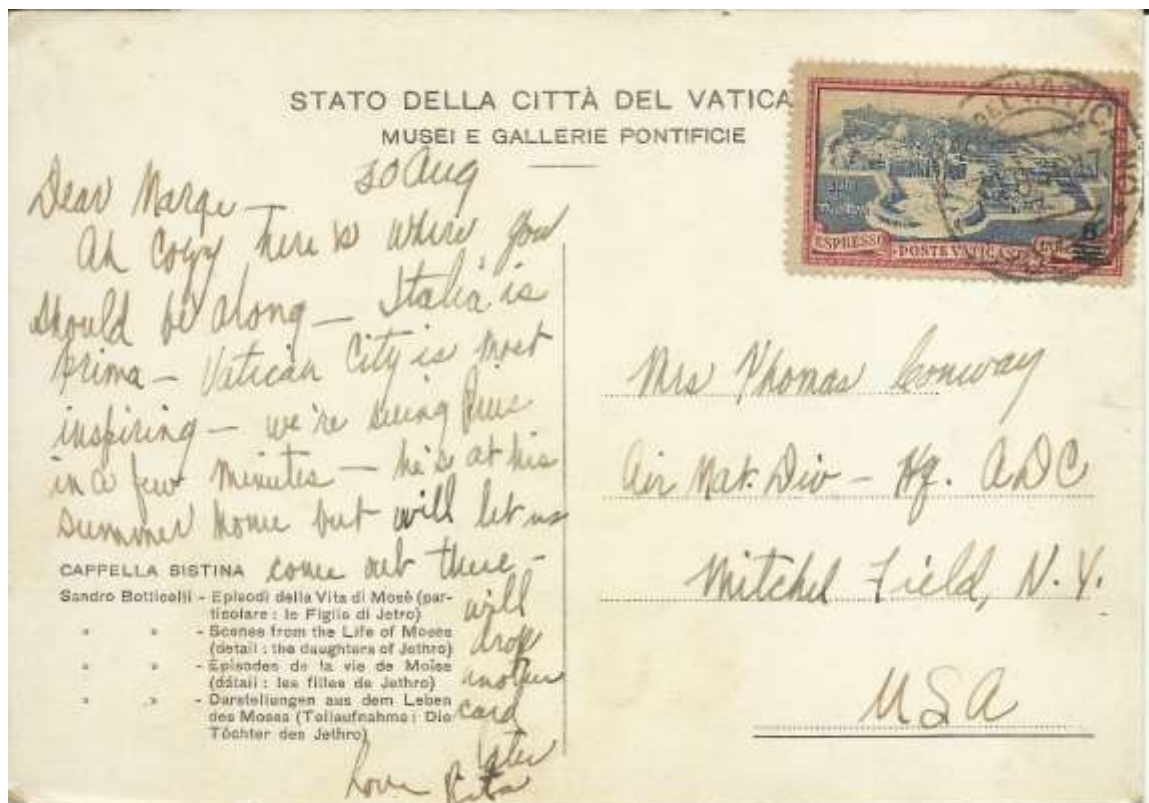 STATO DELLA CITTÀ DEL VATICA
MUSEI E GALLERIE PONTIFICIE
30 Aug
Dear Marge —
Ah Cozy here is where you
should be along — Italia is
prima — Vatican City is most
inspiring — we're seeing Pius
in a few minutes — he's at his
summer home but will let us
come out there —
will
drop
another
card
later
Love Rita
CAPPELLA SISTINA
Sandro Botticelli - Episodi della Vita di Mosè (par-
ticolare : le Figlie di Jetro)
" " - Scenes from the Life of Moses
(detail : the daughters of Jethro)
" " - Episodes de la vie de Moïse
(détail : les filles de Jethro)
" " - Darstellungen aus dem Leben
des Moses (Teilaufnahme : Die
Töchter des Jethro)
ESPRESSO POSTE VATICANE
6
Mrs Thomas Conway
Air Nat. Div — Hq. ADC
Mitchel Field, N.Y.
USA